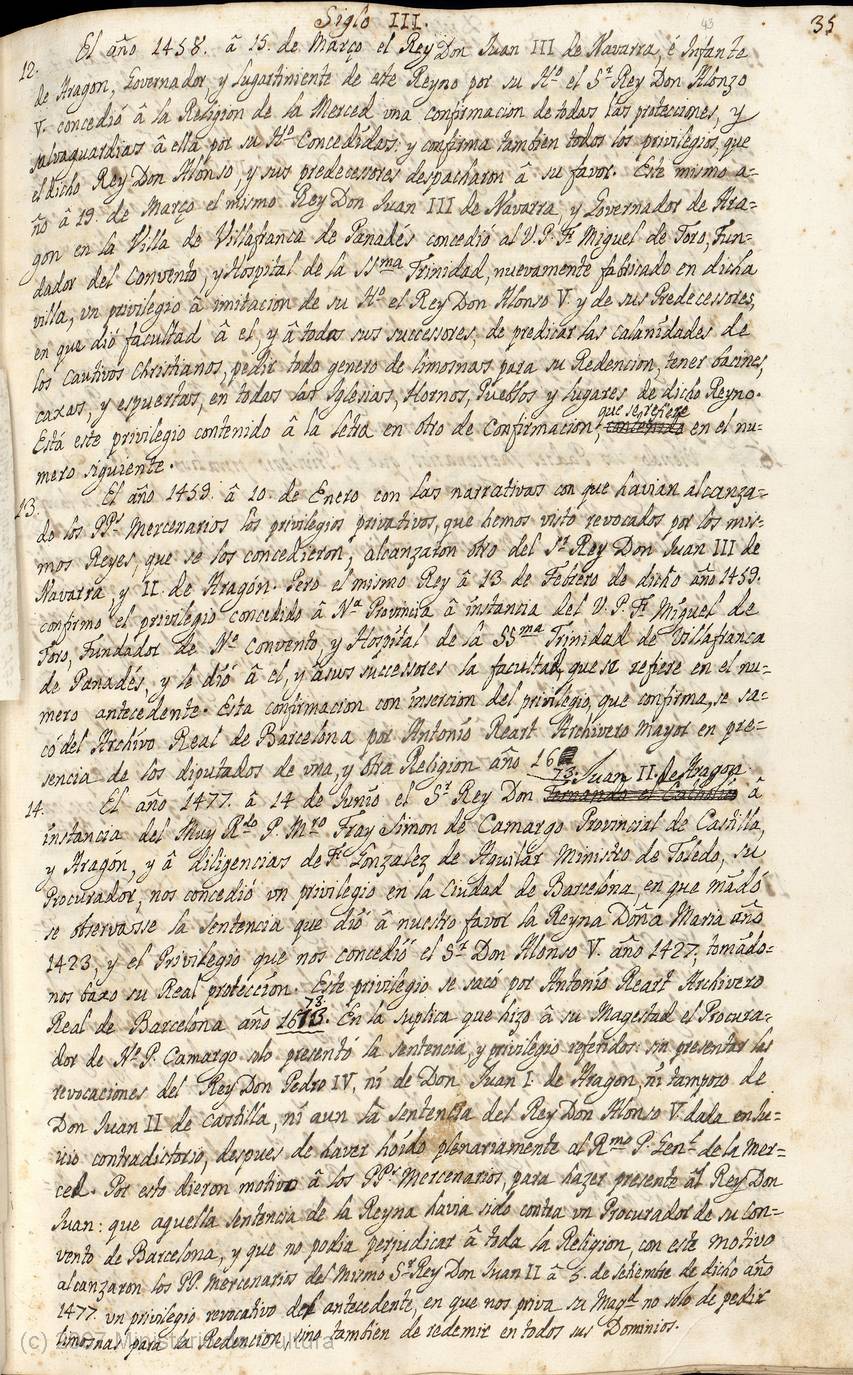 Siglo III.
43
35
12. El año 1458. â 15. de Março el Rey Don Juan III de Navarra, é Infante
de Aragon, Governador, y Lugartiniente de este Reyno por su Hº el Sr Rey Don Alonzo
V. concedió â la Religion de la Merced vna confirmacion de todas las protecciones, y
salvaguardias â ella por su Hº concedidas: y confirma tambien todos los privilegios, que
el dicho Rey Don Alonso, y sus predecessores despacharon â su favor. Este mismo a-
ño â 19. de Março el mismo Rey Don Juan III de Navarra, y Governador de Ara-
gon en la Villa de Villafranca de Panadés concedió al V. P. Fr Miguel de Toro, Fun-
dador del Convento, y Hospital de la SSma Trinidad, nuevamente fabricado en dicha
villa, vn privilegio â imitacion de su Hº el Rey Don Alonso V. y de sus Predecessores,
en que dió facultad â el, y â todos sus successores, de predicar las calamidades de
los Cautivos Christianos, pedir todo genero de limosnas para su Redencion, tener bacines,
caxas, y espuertas, en todas las Iglesias, Hornos, Pueblos y Lugares de dicho Reyno.
Está este privilegio contenido â la letra en otro de Confirmacion, que se refiere contenido en el nu-
mero siguiente.
13. El año 1459. â 10. de Enero con las narrativas con que havian alcanza-
do los PPs Mercenarios los privilegios privativos, que hemos visto revocados por los mis-
mos Reyes, que se los concedieron, alcanzaron otro del Sr Rey Don Juan III de
Navarra, y II. de Aragón. Pero el mismo Rey â 13 de Febrero de dicho año 1459.
confirmo el privilegio concedido â Nª Provincia â instancia del V. P. Fr Miguel de
Toro, Fundador de Nº Convento, y Hospital de la SSma Trinidad de Villafranca
de Panadés, y le dió â el, y â sus successores la facultad, que se refiere en el nu-
mero antecedente. Esta confirmacion con insercion del privilegio, que confirma, se sa-
có del Archivo Real de Barcelona por Antonio Reart Archivero Mayor en pre-
sencia de los diputados de vna, y otra Religion año 16
73. Juan II. de Aragon
14. El año 1477. â 14 de Junio el Sr Rey Don Fernando el Catholico â
instancia del Muy Rdo P. Mro Fray Simon de Camargo Provincial de Castilla,
y Aragón, y â diligencias de Fr Gonzalez de Aguilar Ministro de Toledo, su
Procurador, nos concedió vn privilegio en la Ciudad de Barcelona, en que mãdó
se observasse la sentencia que dió â nuestro favor la Reyna Doña Maria año
1423, y el Privilegio que nos concedió el Sr Don Alonso V. año 1427, tomãdo-
nos baxo su Real protección. Este privilegio se sacó por Antonio Reart Archivero
Real de Barcelona año 1673. En la suplica que hizo â su Magestad el Procura-
dor de Nº P. Camargo solo presentó la sentencia, y privilegio referidos: sin presentar las
revocaciones del Rey Don Pedro IV, ni de Don Juan I. de Aragon, ni tampoco de
Don Juan II de castilla, ni aun la sentencia del Rey Don Alonso V. dada en Ju-
icio contradictorio, despues de haver hoído plenariamente al Rmo P. Genl de la Mer-
ced. Por esto dieron motivo â los PPs Mercenarios, para hazer presente âl Rey Don
Juan: que aquella sentencia de la Reyna havia sido contra vn Procurador de su Con-
vento de Barcelona, y que no podia perjudicar â toda la Religion, con este motivo
alcanzaron los PP. Mercenarios del Mismo Sr Rey Don Juan II â 5. de Setiembre de dicho año
1477. vn privilegio revocativo del antecedente, en que nos priva su Magd no solo de pedir
limosnas para la Redencion, sino tambien de redemir en todos sus Dominios.
(c) 2007 Ministerio de Cultura